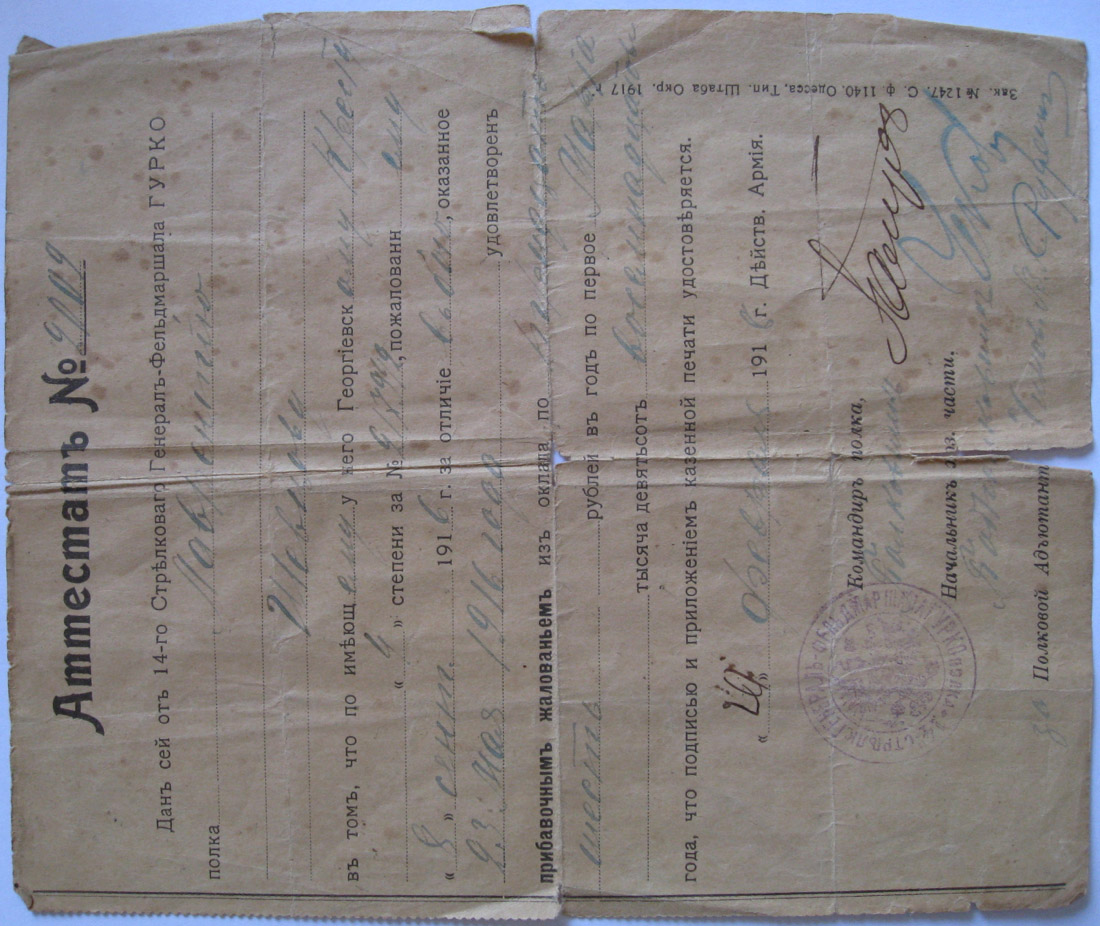 Аттестатъ №
Данъ сей отъ 14-го Стрѣлковаго Генералъ-Фельдмаршала ГУРКО
полка Лаврентію
Шевцову
въ томъ, что по имѣющ ему у него Георгіевск ому Кресту
« 4 » степени за №, пожалованн ому
« 8 » сент. 1916 г. за отличіе въ бою, оказанное
23 мая 1916 года удовлетворенъ
прибавочнымъ жалованьемъ изъ оклада по
шесть рублей въ годъ по первое Марта
тысяча девятьсотъ восемнадцатаго
года, что подписью и приложеніемъ казенной печати удостовѣряется.
« » февраля 1918 г. Дѣйств. Армія.
Командиръ полка,
Полковникъ
Начальникъ хоз. части,
За Полковой Адъютантъ
Зак. № 1247. С. ф. 1140. Одесса, Тип. Штаба Окр. 1917 г.